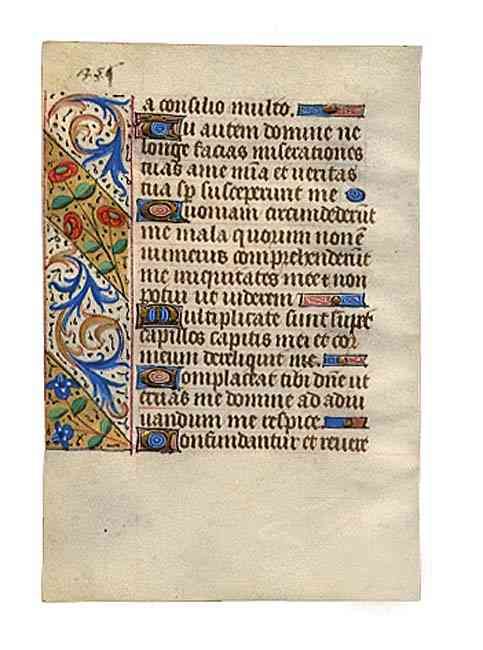 a consilio multo.
Tu autem domine ne
longe facias miserationes
tuas a me mīa et veritas
tua sp̄ susceperunt me
Quoniam circumdederūt
me mala quorum non ē
numerus comprehenderūt
me iniquitates mee et non
potui ut viderem
Multiplicate sunt super
capillos capitis mei et cor
meum dereliquit me.
Complaceat tibi dn̄e ut
eruas me domine ad adiu
uandum me respice.
Confundantur et revere